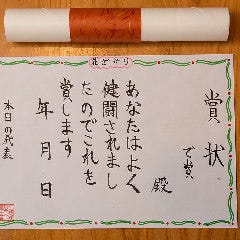 賞状
で賞
殿
あなたはよく
健闘されまし
たのでこれを
賞します
年月日
本日の代表